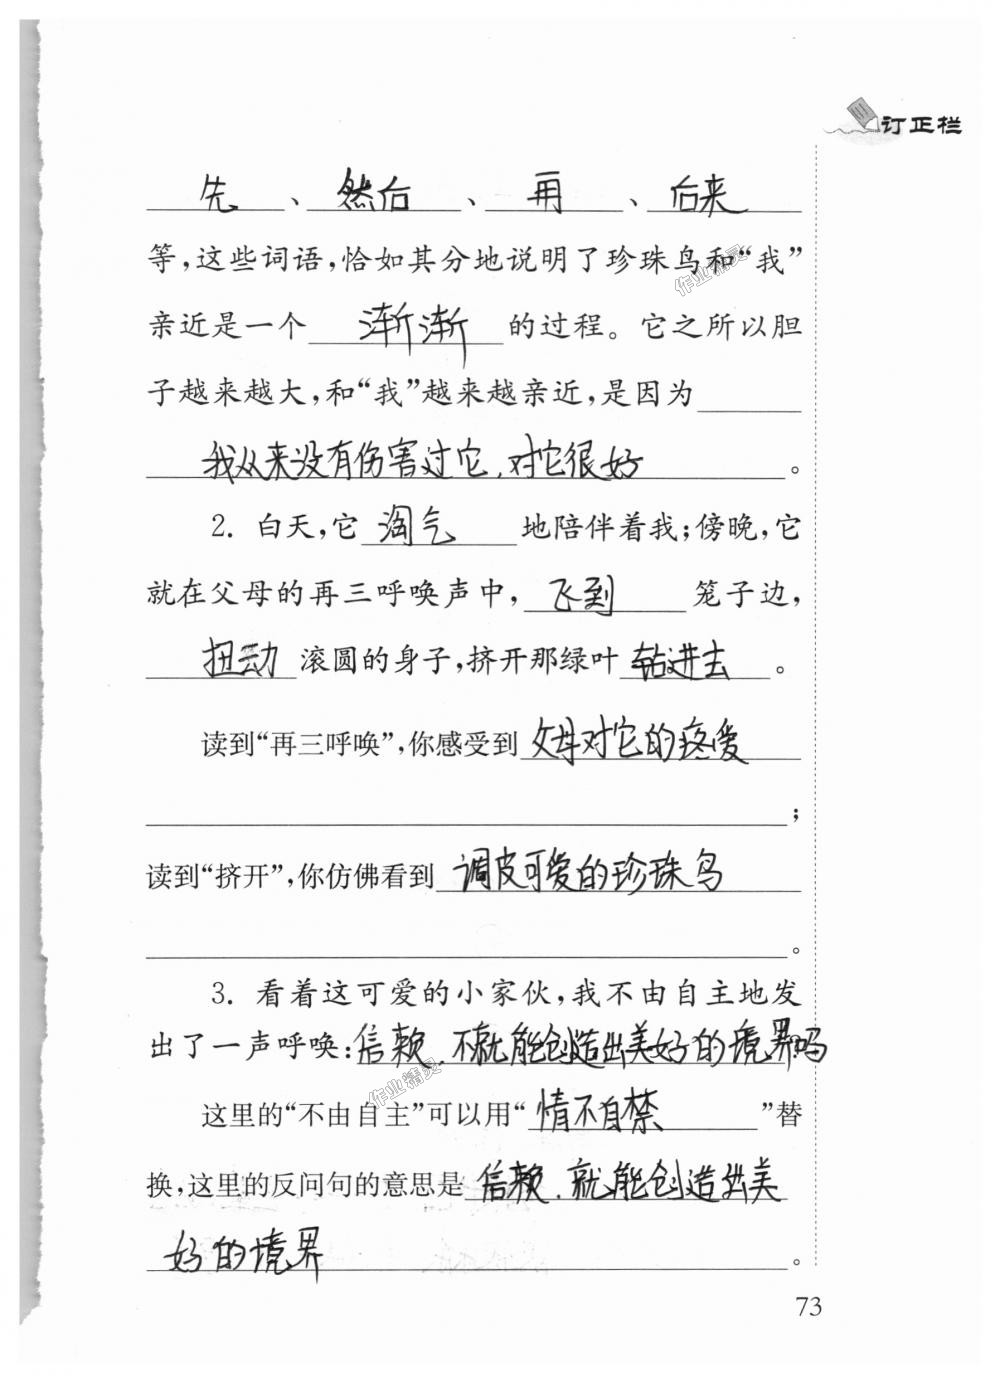 订正栏
先、然后、再、后来
等,这些词语,恰如其分地说明了珍珠鸟和“我”
亲近是一个渐渐的过程。它之所以胆
子越来越大,和“我”越来越亲近,是因为
我从来没有伤害过它,对它很好。
2. 白天,它淘气地陪伴着我;傍晚,它
就在父母的再三呼唤声中,飞到笼子边,
扭动滚圆的身子,挤开那绿叶钻进去。
读到“再三呼唤”,你感受到父母对它的疼爱
;
读到“挤开”,你仿佛看到调皮可爱的珍珠鸟
。
3. 看着这可爱的小家伙,我不由自主地发
出了一声呼唤:信赖,不就能创造出美好的境界吗
这里的“不由自主”可以用“情不自禁”替
换,这里的反问句的意思是信赖,就能创造出美
好的境界。
73
作业精灵
作业精灵